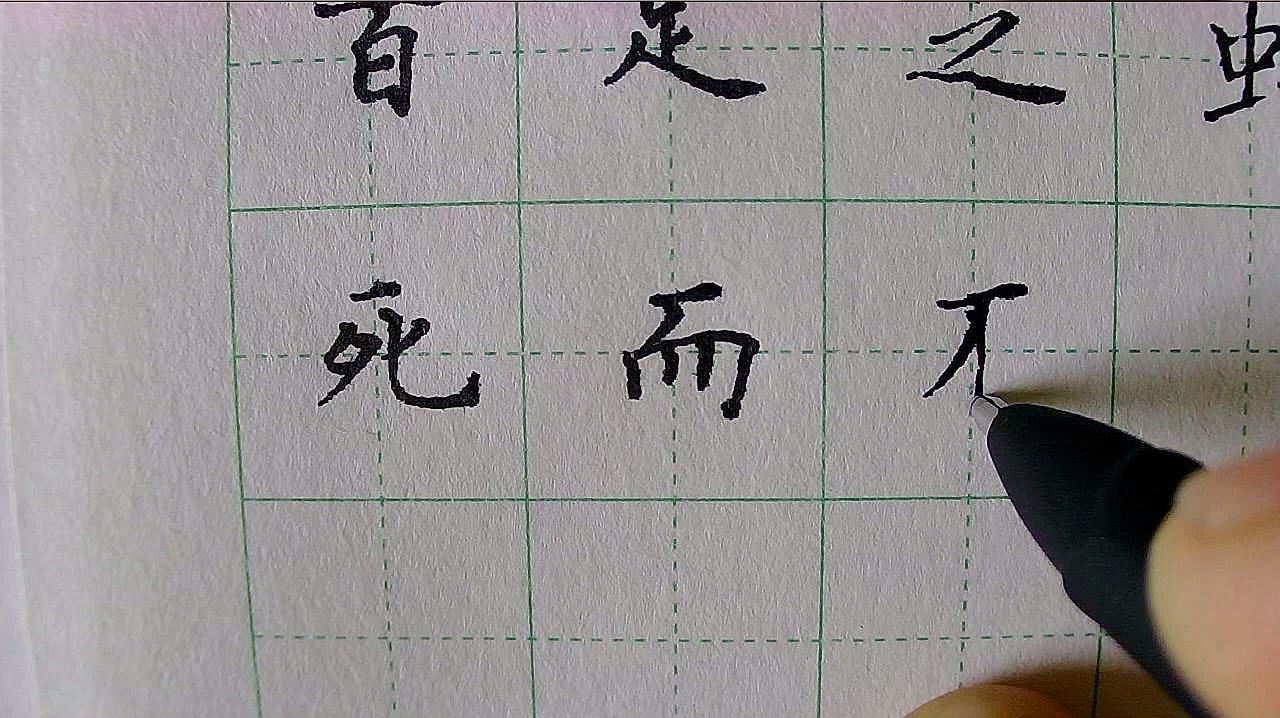 百足之虫
死而不